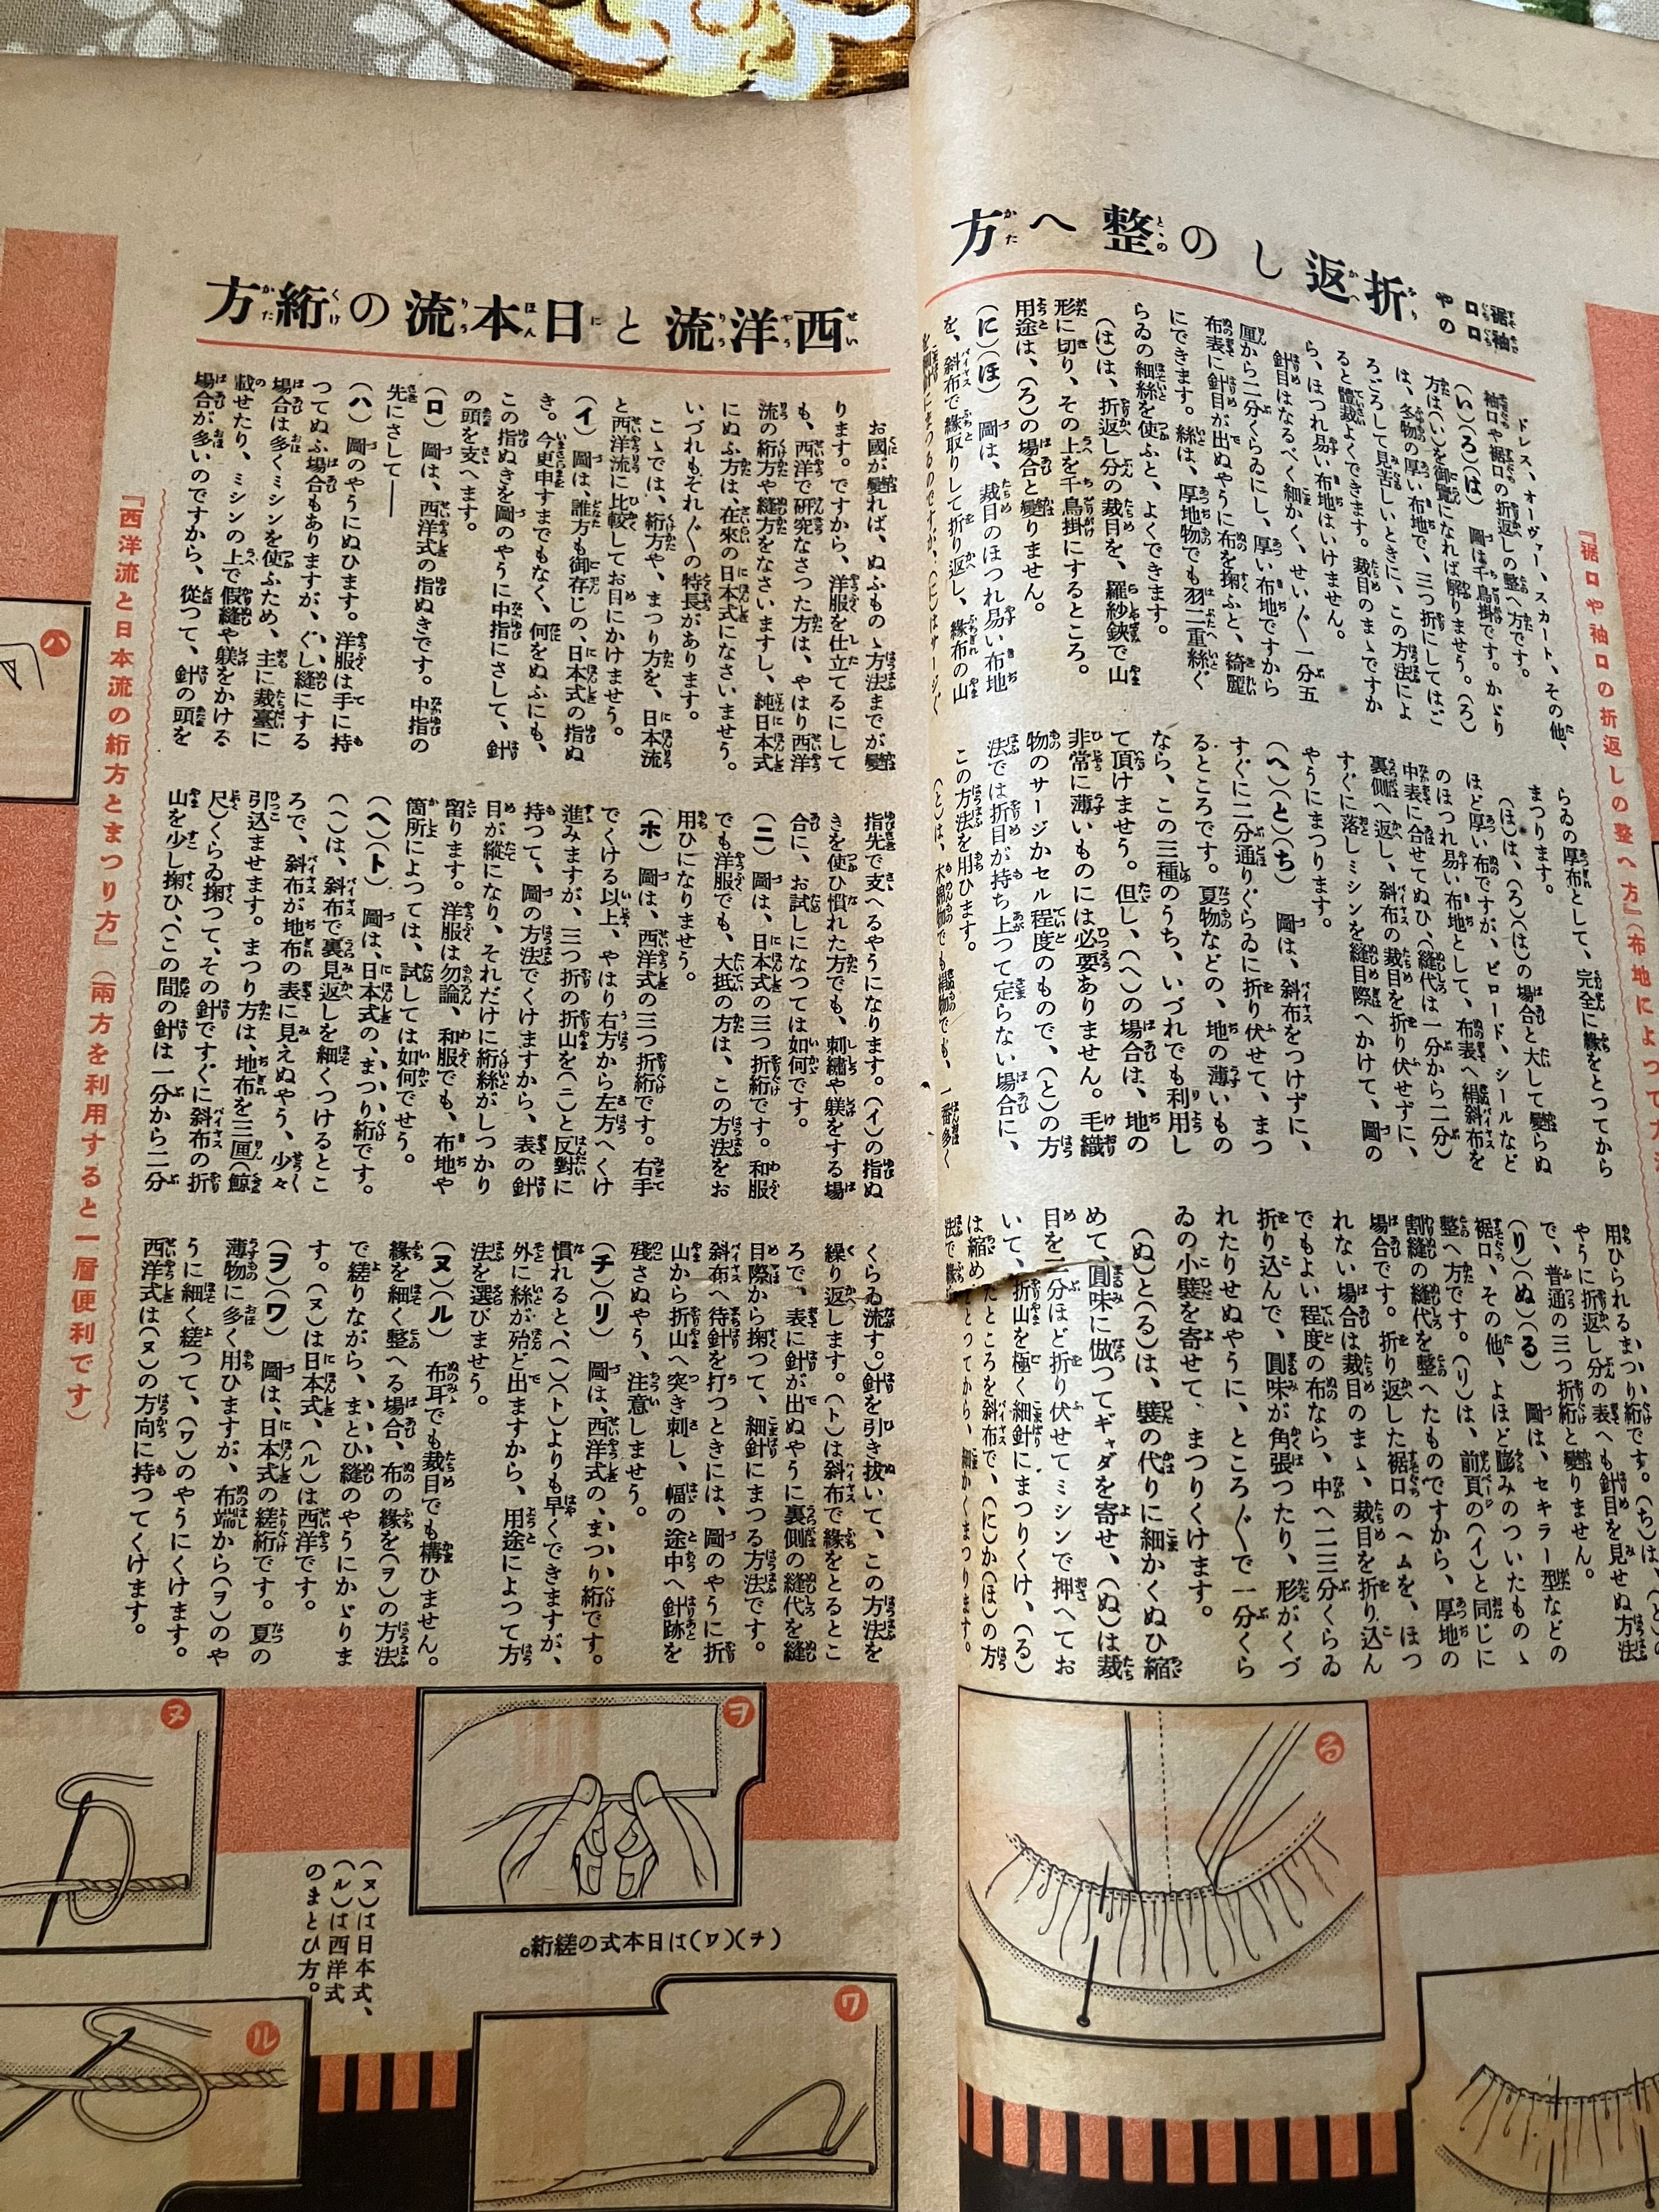 袖口
裾口やの
折返しの整へ方
ドレス、オーヴァー、スカート、その他、
袖口や裾口の折返しの整へ方です。
(い)(ろ)(は) 圖は千鳥掛です。かゞり
方は(い)を御覽になれば解りませう。(ろ)
は、冬物の厚い布地で、三つ折にしてはご
ろごろして見苦しいときに、この方法によ
ると體裁よくできます。裁目のまゝですか
ら、ほつれ易い布地はいけません。
針目はなるべく細かく、せい〴〵一分五
厘から二分くらゐにし、厚い布地ですから
布表に針目が出ぬやうに布を掬ふと、綺麗
にできます。絲は、厚地物でも羽二重絲ぐ
らゐの細絲を使ふと、よくできます。
(は)は、折返し分の裁目を、羅紗鋏で山
形に切り、その上を千鳥掛にするところ。
用途は、(ろ)の場合と變りません。
(に)(ほ) 圖は、裁目のほつれ易い布地
を、斜布で緣取りして折り返し、緣布の山
らゐの厚布として、完全に緣をとつてから
まつります。
(ほ)は、(ろ)(は)の場合と大して變らぬ
ほど厚い布ですが、ビロード、シールなど
のほつれ易い布地として、布表へ絹斜布を
中表に合せてぬひ、(縫代は一分から二分)
裏側へ返し、斜布の裁目を折り伏せずに、
すぐに落しミシンを縫目際へかけて、圖の
やうにまつります。
(へ)(と)(ち) 圖は、斜布をつけずに、
すぐに二分通りぐらゐに折り伏せて、まつ
るところです。夏物などの、地の薄いもの
なら、この三種のうち、いづれでも利用し
て頂けませう。但し、(へ)の場合は、地の
非常に薄いものには必要ありません。毛織
物のサージかセル程度のもので、(と)の方
法では折目が持ち上つて定らない場合に、
この方法を用ひます。
(と)は、木綿物でも絹物でも、一番多く
用ひられるまつり絎です。(ち)は、(と)の
やうに折返し分の表へも針目を見せぬ方法
で、普通の三つ折絎と變りません。
(り)(ぬ)(る) 圖は、セキラー型などの
裾口、その他、よほど膨みのついたものゝ
整へ方です。(り)は、前頁の(イ)と同じに
割縫の縫代を整へたものですから、厚地の
場合です。折り返した裾口のヘムを、ほつ
れない場合は裁目のまゝ、裁目を折り込ん
でもよい程度の布なら、中へ二三分くらゐ
折り込んで、圓味が角張つたり、形がくづ
れたりせぬやうに、ところ〴〵で一分くら
ゐの小襞を寄せて、まつりくけます。
(ぬ)と(る)は、襞の代りに細かくぬひ縮
めて、圓味に倣つてギャダを寄せ、(ぬ)は裁
目を二分ほど折り伏せてミシンで押へてお
いて、折山を極く細針にまつりくけ、(る)
は縮めたところを斜布で、(に)か(ほ)の方
法で緣をとつてから、細かくまつります。
『裾口や袖口の折返しの整へ方』(布地によつて方法
る
西洋流と日本流の絎方
お國が變れば、ぬふものゝ方法までが變
ります。ですから、洋服を仕立てるにして
も、西洋で研究なさつた方は、やはり西洋
流の絎方や縫方をなさいますし、純日本式
にぬふ方は、在來の日本式になさいませう。
いづれもそれ〴〵の特長があります。
こゝでは、絎方や、まつり方を、日本流
と西洋流に比較してお目にかけませう。
(イ) 圖は、誰方も御存じの、日本式の指ぬ
き。今更申すまでもなく、何をぬふにも、
この指ぬきを圖のやうに中指にさして、針
の頭を支へます。
(ロ) 圖は、西洋式の指ぬきです。中指の
先にさして――
(ハ) 圖のやうにぬひます。洋服は手に持
つてぬふ場合もありますが、ぐし縫にする
場合は多くミシンを使ふため、主に裁臺に
載せたり、ミシンの上で假縫や躾をかける
場合が多いのですから、從つて、針の頭を
指先で支へるやうになります。(イ)の指ぬ
きを使ひ慣れた方でも、刺繡や躾をする場
合に、お試しになつては如何です。
(ニ) 圖は、日本式の三つ折絎です。和服
でも洋服でも、大抵の方は、この方法をお
用ひになりませう。
(ホ) 圖は、西洋式の三つ折絎です。右手
でくける以上、やはり右方から左方へくけ
進みますが、三つ折の折山を(ニ)と反對に
持つて、圖の方法でくけますから、表の針
目が縱になり、それだけに絎絲がしつかり
留ります。洋服は勿論、和服でも、布地や
箇所によつては、試しては如何でせう。
(ヘ)(ト) 圖は、日本式の、まつり絎です。
(ヘ)は、斜布で裏見返しを細くつけるとこ
ろで、斜布が地布の表に見えぬやう、少々
引込ませます。まつり方は、地布を三厘(鯨
尺)くらゐ掬つて、その針ですぐに斜布の折
山を少し掬ひ、(この間の針は一分から二分
くらゐ流す。)針を引き拔いて、この方法を
繰り返します。(ト)は斜布で緣をとるとこ
ろで、表に針が出ぬやうに裏側の縫代を縫
目際から掬つて、細針にまつる方法です。
斜布へ待針を打つときには、圖のやうに折
山から折山へ突き刺し、幅の途中へ針跡を
殘さぬやう、注意しませう。
(チ)(リ) 圖は、西洋式の、まつり絎です。
慣れると、(ヘ)(ト)よりも早くできますが、
外に絲が殆ど出ますから、用途によつて方
法を選びませう。
(ヌ)(ル) 布耳でも裁目でも構ひません。
緣を細く整へる場合、布の緣を(ヲ)の方法
で縒りながら、まとひ縫のやうにかゞりま
す。(ヌ)は日本式、(ル)は西洋です。
(ヲ)(ワ) 圖は、日本式の縒絎です。夏の
薄物に多く用ひますが、布端から(ヲ)のや
うに細く縒つて、(ワ)のやうにくけます。
西洋式は(ヌ)の方向に持つてくけます。
『西洋流と日本流の絎方とまつり方』(兩方を利用すると一層便利です)
ハ
ヌ
ヲ
(ヌ)は日本式、
(ル)は西洋式
のまとひ方。
(チ)(ワ)は日本式の縒絎。
ル
ワ